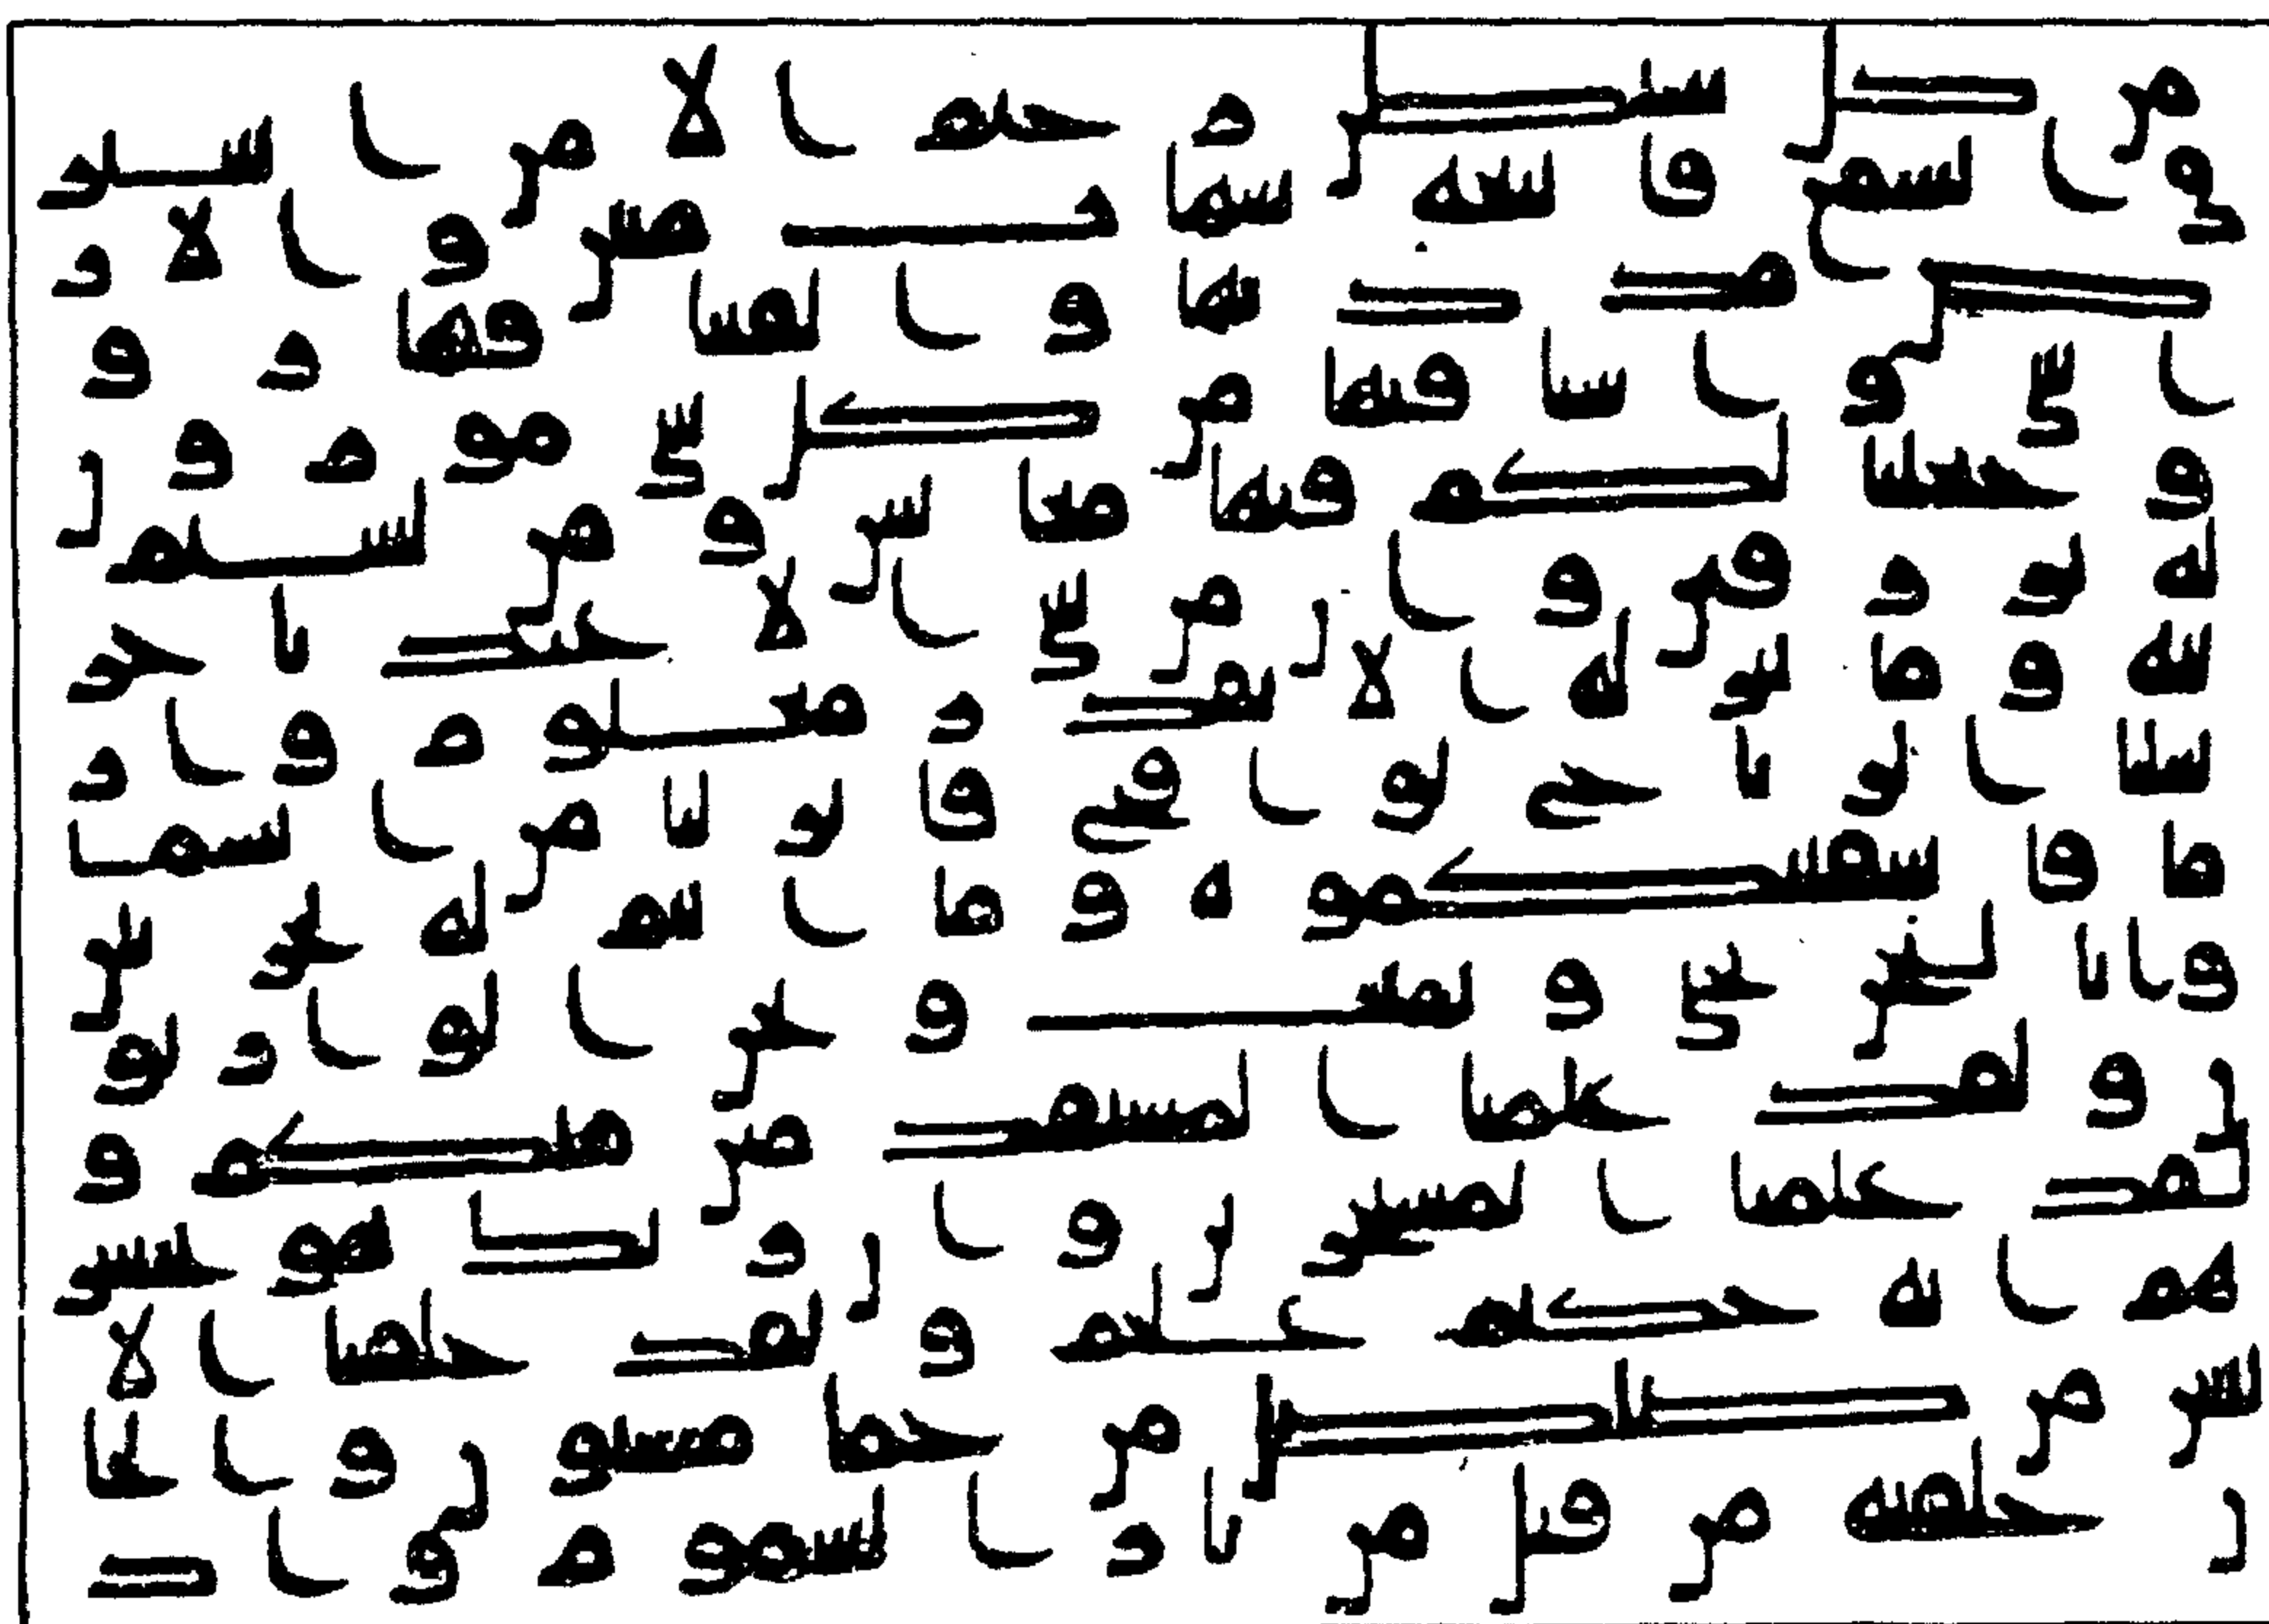 من كل شيطن رجيم الا من استر
ق السمع فاتبعه شهاب مبين والار
ض مددنها والقينا فيها رو
اسي وانبتنا فيها من كل شي موزو
ن وجعلنا لكم فيها معيش ومن لستم
له برزقين وان من شي الا عندنا خز
ئنه وما ننزله الا بقدر معلوم وار
سلنا الرياح لواقح فانزلنا من السما
ما فاسقينكموه وما انتم له بخزنين
وانا لنحن نحي ونميت ونحن الوارثو
ن ولقد علمنا المستقدمين منكم و
لقد علمنا المستخرين وان ربك هو يحشر
هم انه حكيم عليم ولقد خلقنا الا
نسن من صلصل من حما مسنون والجا
ن خلقنه من قبل من نار السموم واذ